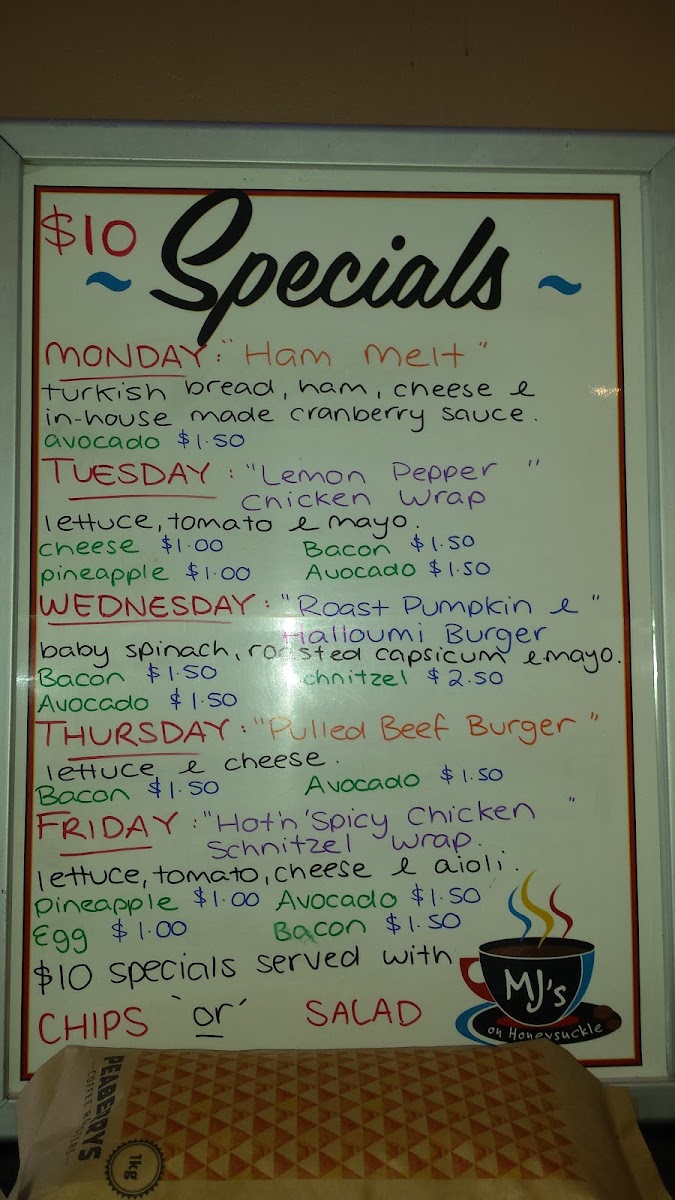 $10
~ Specials ~
MONDAY: "Ham melt"
turkish bread, ham, cheese &
in-house made cranberry sauce.
avocado $1.50
TUESDAY: "Lemon Pepper "
Chicken Wrap
lettuce, tomato & mayo.
cheese $1.00 Bacon $1.50
pineapple $1.00 Avocado $1.50
WEDNESDAY: "Roast Pumpkin & "
Halloumi Burger
baby spinach, roasted capsicum & mayo.
Bacon $1.50 chnitzel $2.50
Avocado $1.50
THURSDAY: "Pulled Beef Burger"
lettuce & cheese.
Bacon $1.50 Avocado $1.50
FRIDAY: "Hot'n'Spicy Chicken "
Schnitzel Wrap.
lettuce, tomato, cheese & aioli.
pineapple $1.00 Avocado $1.50
Egg $1.00 Bacon $1.50
$10 specials served with
CHIPS 'or' SALAD
MJ's
on Honeysuckle
PEABERRYS
COFFEE ROASTERS
1kg